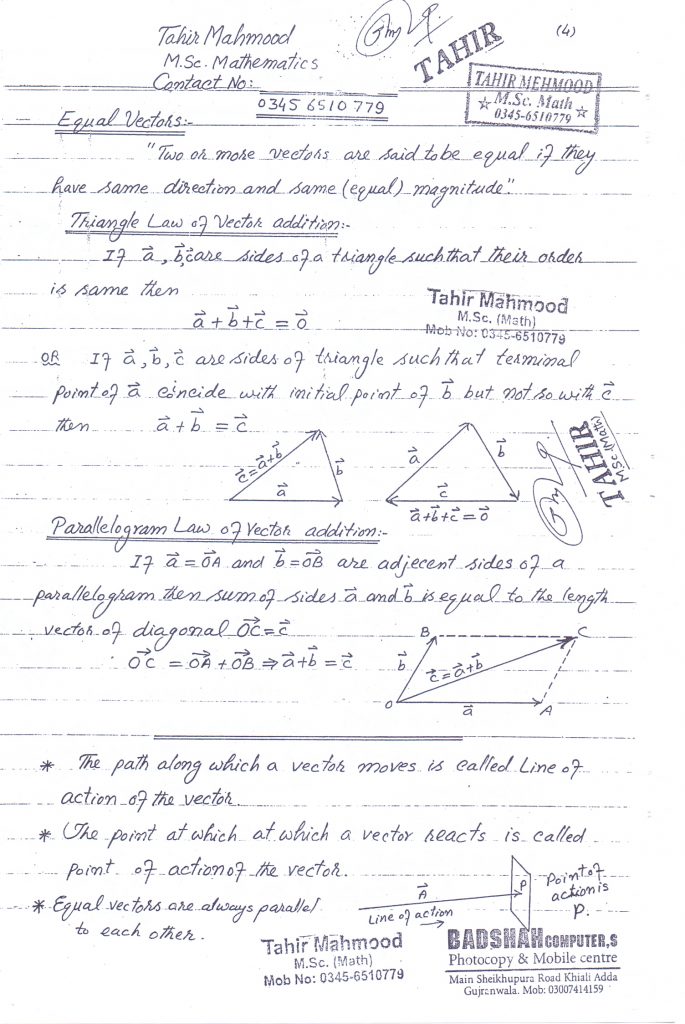 Tahir Mahmood
M.Sc. Mathematics
Contact No:
0345 6510 779
TAHIR
(4)
TAHIR MEHMOOD
☆ M.Sc. Math ☆
0345-6510779
Equal Vectors:-
"Two or more vectors are said to be equal if they
have same direction and same (equal) magnitude".
Triangle Law of Vector addition:-
If a⃗, b⃗, c⃗ are sides of a triangle such that their order
is same then
a⃗ + b⃗ + c⃗ = o⃗
Tahir Mahmood
M.Sc. (Math)
Mob No: 0345-6510779
OR If a⃗, b⃗, c⃗ are sides of triangle such that terminal
point of a⃗ coincide with initial point of b⃗ but not so with c⃗
then a⃗ + b⃗ = c⃗
c⃗ = a⃗ + b⃗
b⃗
a⃗
a⃗
b⃗
c⃗
a⃗ + b⃗ + c⃗ = o⃗
TAHIR
M.Sc. (Math)
Parallelogram Law of Vector addition:-
If a⃗ = OA⃗ and b⃗ = OB⃗ are adjecent sides of a
parallelogram then sum of sides a⃗ and b⃗ is equal to the length
vector of diagonal OC⃗ = c⃗
∴ OC⃗ = OA⃗ + OB⃗ ⇒ a⃗ + b⃗ = c⃗
B
C
b⃗
c⃗ = a⃗ + b⃗
O
a⃗
A
* The path along which a vector moves is called Line of
action of the vector.
* The point at which at which a vector reacts is called
point of action of the vector.
* Equal vectors are always parallel
to each other.
A⃗
Line of action
P
Point of
action is
P.
Tahir Mahmood
M.Sc. (Math)
Mob No: 0345-6510779
BADSHAH COMPUTER,S
Photocopy & Mobile centre
Main Sheikhupura Road Khiali Adda
Gujranwala. Mob: 03007414159